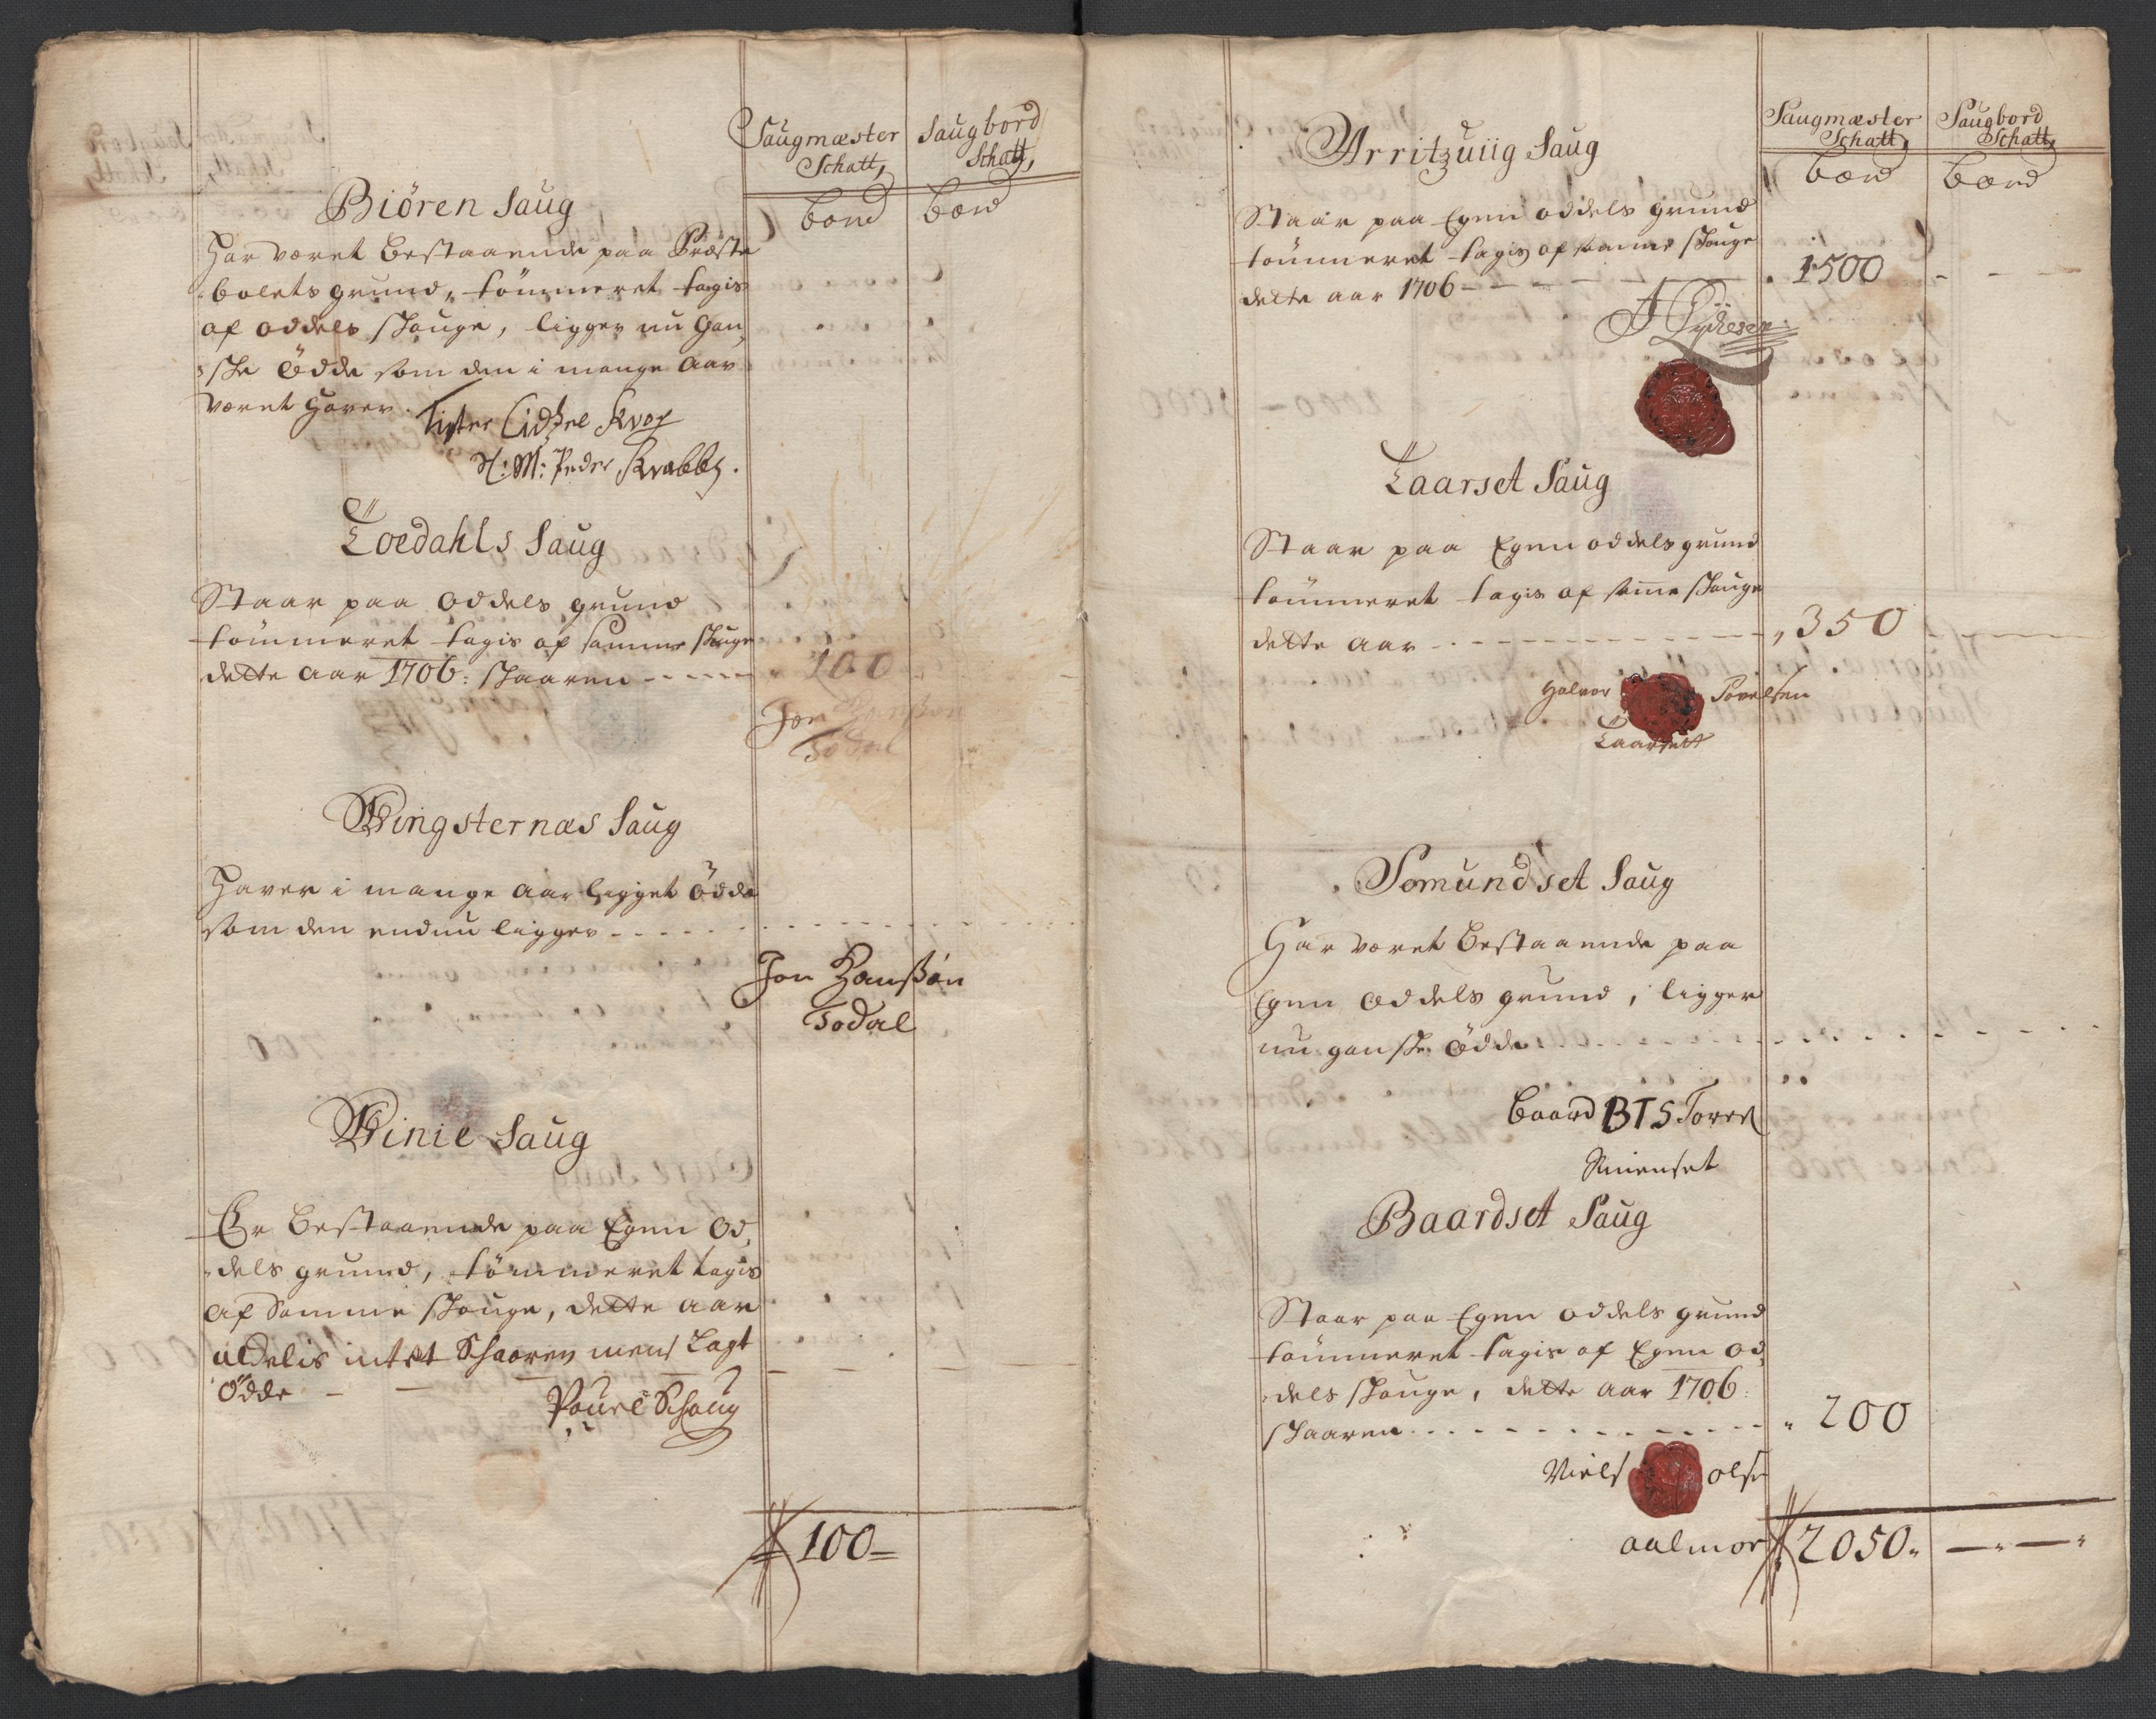 Saugmæster Saugbord
Schatt, Schatt,
bord bord
Biören Saug
Har været bestaaende paa Præste
bolets grund, tömmeret tagis
af oddels skouge, ligger nu gan,
ske Ödde som den i mange aar
været haver.
H: M: Peder Krabby.
Toedahls Saug
Staar paa oddels grund
tömmeret tagis af samme skouge
dette aar 1706: skaaren - - - - - 100
Jon Hanssøn
Todal
Wingsternæs Saug
Haver i mange aar ligget Ödde
som den endnu ligger - - - - -
Jon Hanssøn
Todal
Winie Saug
Er bestaaende paa Egen od,
dels grund, tömmeret tagis
af Samme skouge, dette aar
aldelis intet Schaaren mens Lagt
Ødde - -
Pouel Schoug
100
Saugmæster Saugbord
Schatt, Schatt,
bord bord
Arritzuiig Saug
Staar paa Egen oddels grund
tömmeret tagis af samme skouge
dette aar 1706 - - - - - 1500 - - -
Laarset Saug
Staar paa Egen oddels grund
tömmeret tagis af same skouge
dette aar - - - - - 350
Halvor Povelsen
Laarsett
Somundset Saug
Har været bestaaende paa
Egen oddels grund, ligger
nu ganske Ödde - - - - -
Baard BTS
Baardset Saug
Staar paa Egen oddels grund
tömmeret tagis af Egen od,
dels skouge, dette aar 1706:
skaaren - - - - - 200
Niels olsen
aalmor
2050